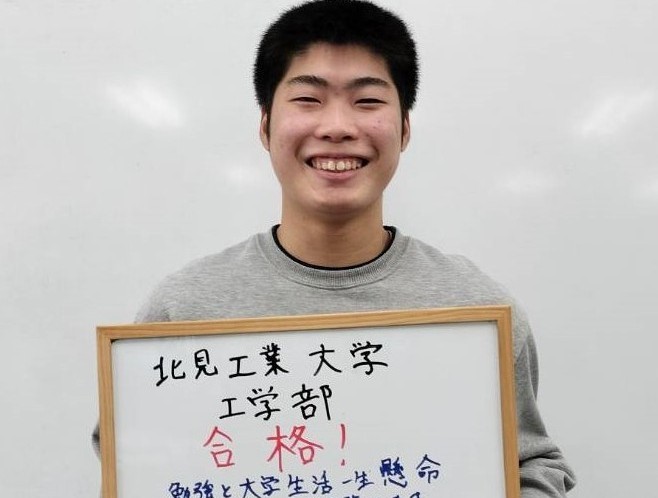 北見工業大学
工学部
合格!
勉強と大学生活一生懸命